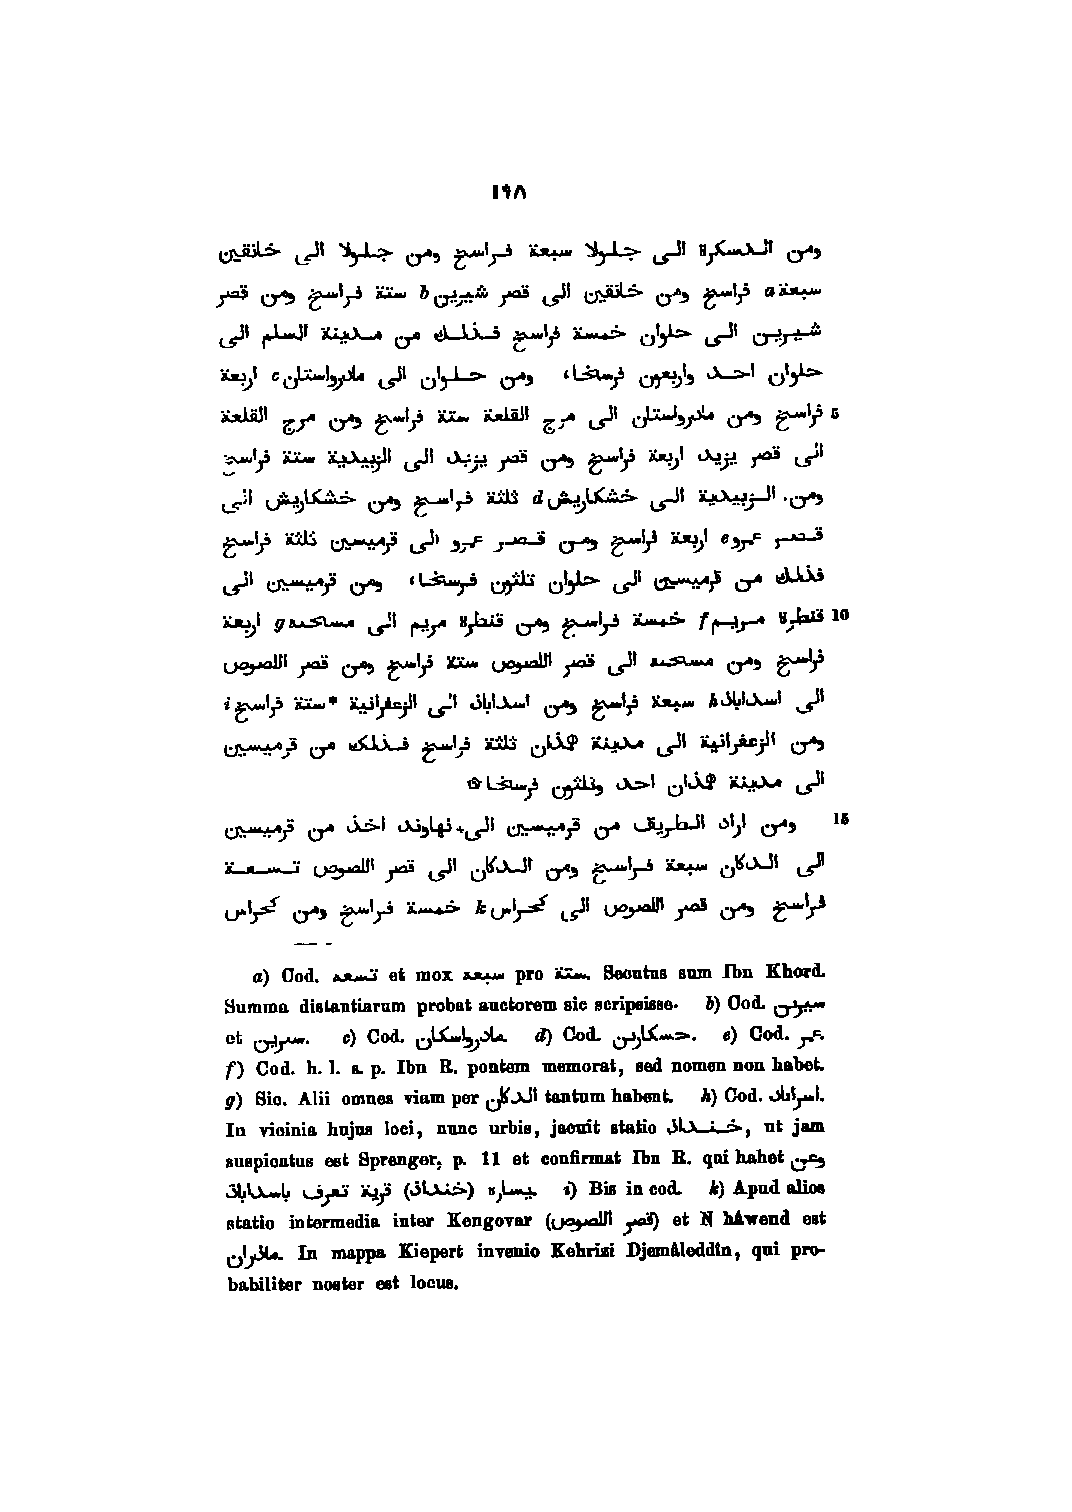 ١٩٨
ومن الدسكرة الى جلولا سبعة فراسخ ومن جلولا الى خانقين
سبعة a فراسخ ومن خانقين الى قصر شيرين b ستة فراسخ ومن قصر
شيرين الى حلوان خمسة فراسخ فذلك من مدينة السلم الى
حلوان احد واربعون فرسخا، ومن حلوان الى مادرواستان c اربعة
5 فراسخ ومن مادرواستان الى مرج القلعة ستة فراسخ ومن مرج القلعة
الى قصر يزيد اربعة فراسخ ومن قصر يزيد الى الزبيدية ستة فراسخ
ومن الزبيدية الى خشكاريش d ثلثة فراسخ ومن خشكاريش الى
قصر عمرو e اربعة فراسخ ومن قصر عمرو الى قرميسين ثلثة فراسخ
فذلك من قرميسين الى حلوان ثلثون فرسخا، ومن قرميسين الى
10 قنطرة مريم f خمسة فراسخ ومن قنطرة مريم الى g اربعة
فراسخ ومن الى قصر اللصوص ستة فراسخ ومن قصر اللصوص
الى اسداباذ h سبعة فراسخ ومن اسداباذ الى الزعفرانية *ستة فراسخ i
ومن الزعفرانية الى مدينة همذان ثلثة فراسخ فذلك من قرميسين
الى مدينة همذان احد وثلثون فرسخا ۞
15 ومن اراد الطريق من قرميسين الى نهاوند اخذ من قرميسين
الى الدكان سبعة فراسخ ومن الدكان الى قصر اللصوص تسعة
فراسخ ومن قصر اللصوص الى كحراس k خمسة فراسخ ومن كحراس
a) Cod. تسعه et mox سبعه pro ستة. Secutus sum Ibn Khord.
Summa distantiarum probat auctorem sic scripsisse. b) Cod.
et c) Cod. مادرواسكان. d) Cod. e) Cod. عمر.
f) Cod. h. l. s. p. Ibn R. pontem memorat, sed nomen non habet.
g) Sic. Alii omnes viam per الدكان tantum habent. h) Cod. اسراباد.
In vicinia hujus loci, nunc urbis, jacuit statio خنداذ, ut jam
suspicatus est Sprenger, p. 11 et confirmat Ibn R. qui habet وعن
يساره (خنداذ) قرية تعرف باسداباذ i) Bis in cod. k) Apud alios
statio intermedia inter Kengovar (قصر اللصوص) et Nhâwend est
ماذران. In mappa Kiepert invenio Kehrizi Djemâleddîn, qui pro-
babiliter noster est locus.